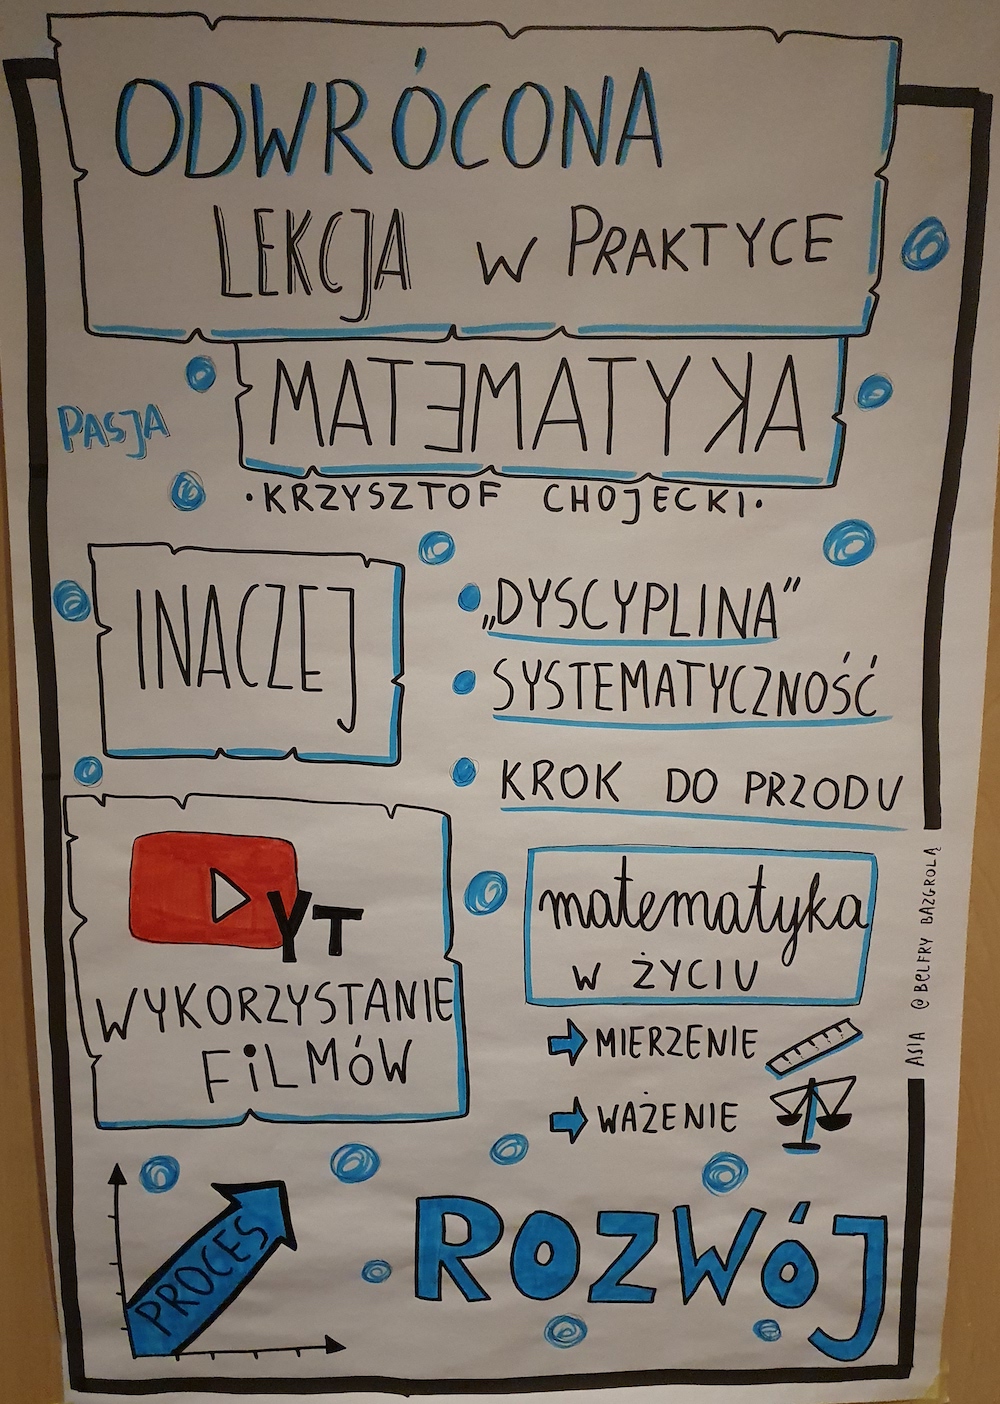 ODWRÓCONA
LEKCJA W PRAKTYCE
MATEMATYKA
PASJA
·KRZYSZTOF CHOJECKI·
INACZEJ
„DYSCYPLINA”
SYSTEMATYCZNOŚĆ
KROK DO PRZODU
YT
WYKORZYSTANIE
FiLMÓW
matematyka
W ŻYCIU
MIERZENIE
WAŻENIE
ASIA @BELFRY BAZGROLĄ
PROCES
ROZWÓJ